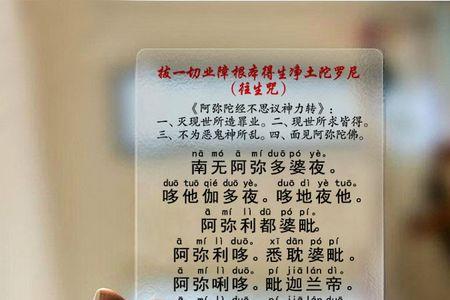 拔一切业障根本得生净土陀罗尼
（往生咒）
《阿弥陀经不思议神力转》：
一、灭现世所造罪业。二、现世所求皆得。
三、不为恶鬼神所乱。四、面见阿弥陀佛。
nā mó ā mí duō pó yè。
南无阿弥多婆夜。
duō tuō qié duō yè。 duō dì yè tuō。
哆他伽多夜。哆地夜他。
ā mí lì dū pó pí
阿弥利都婆毗。
ā mí lì duō。 xī dān pó pí
阿弥利哆。悉耽婆毗。
ā mí lì duō。 pí jiā lán dì。
阿弥唎哆。毗迦兰帝。